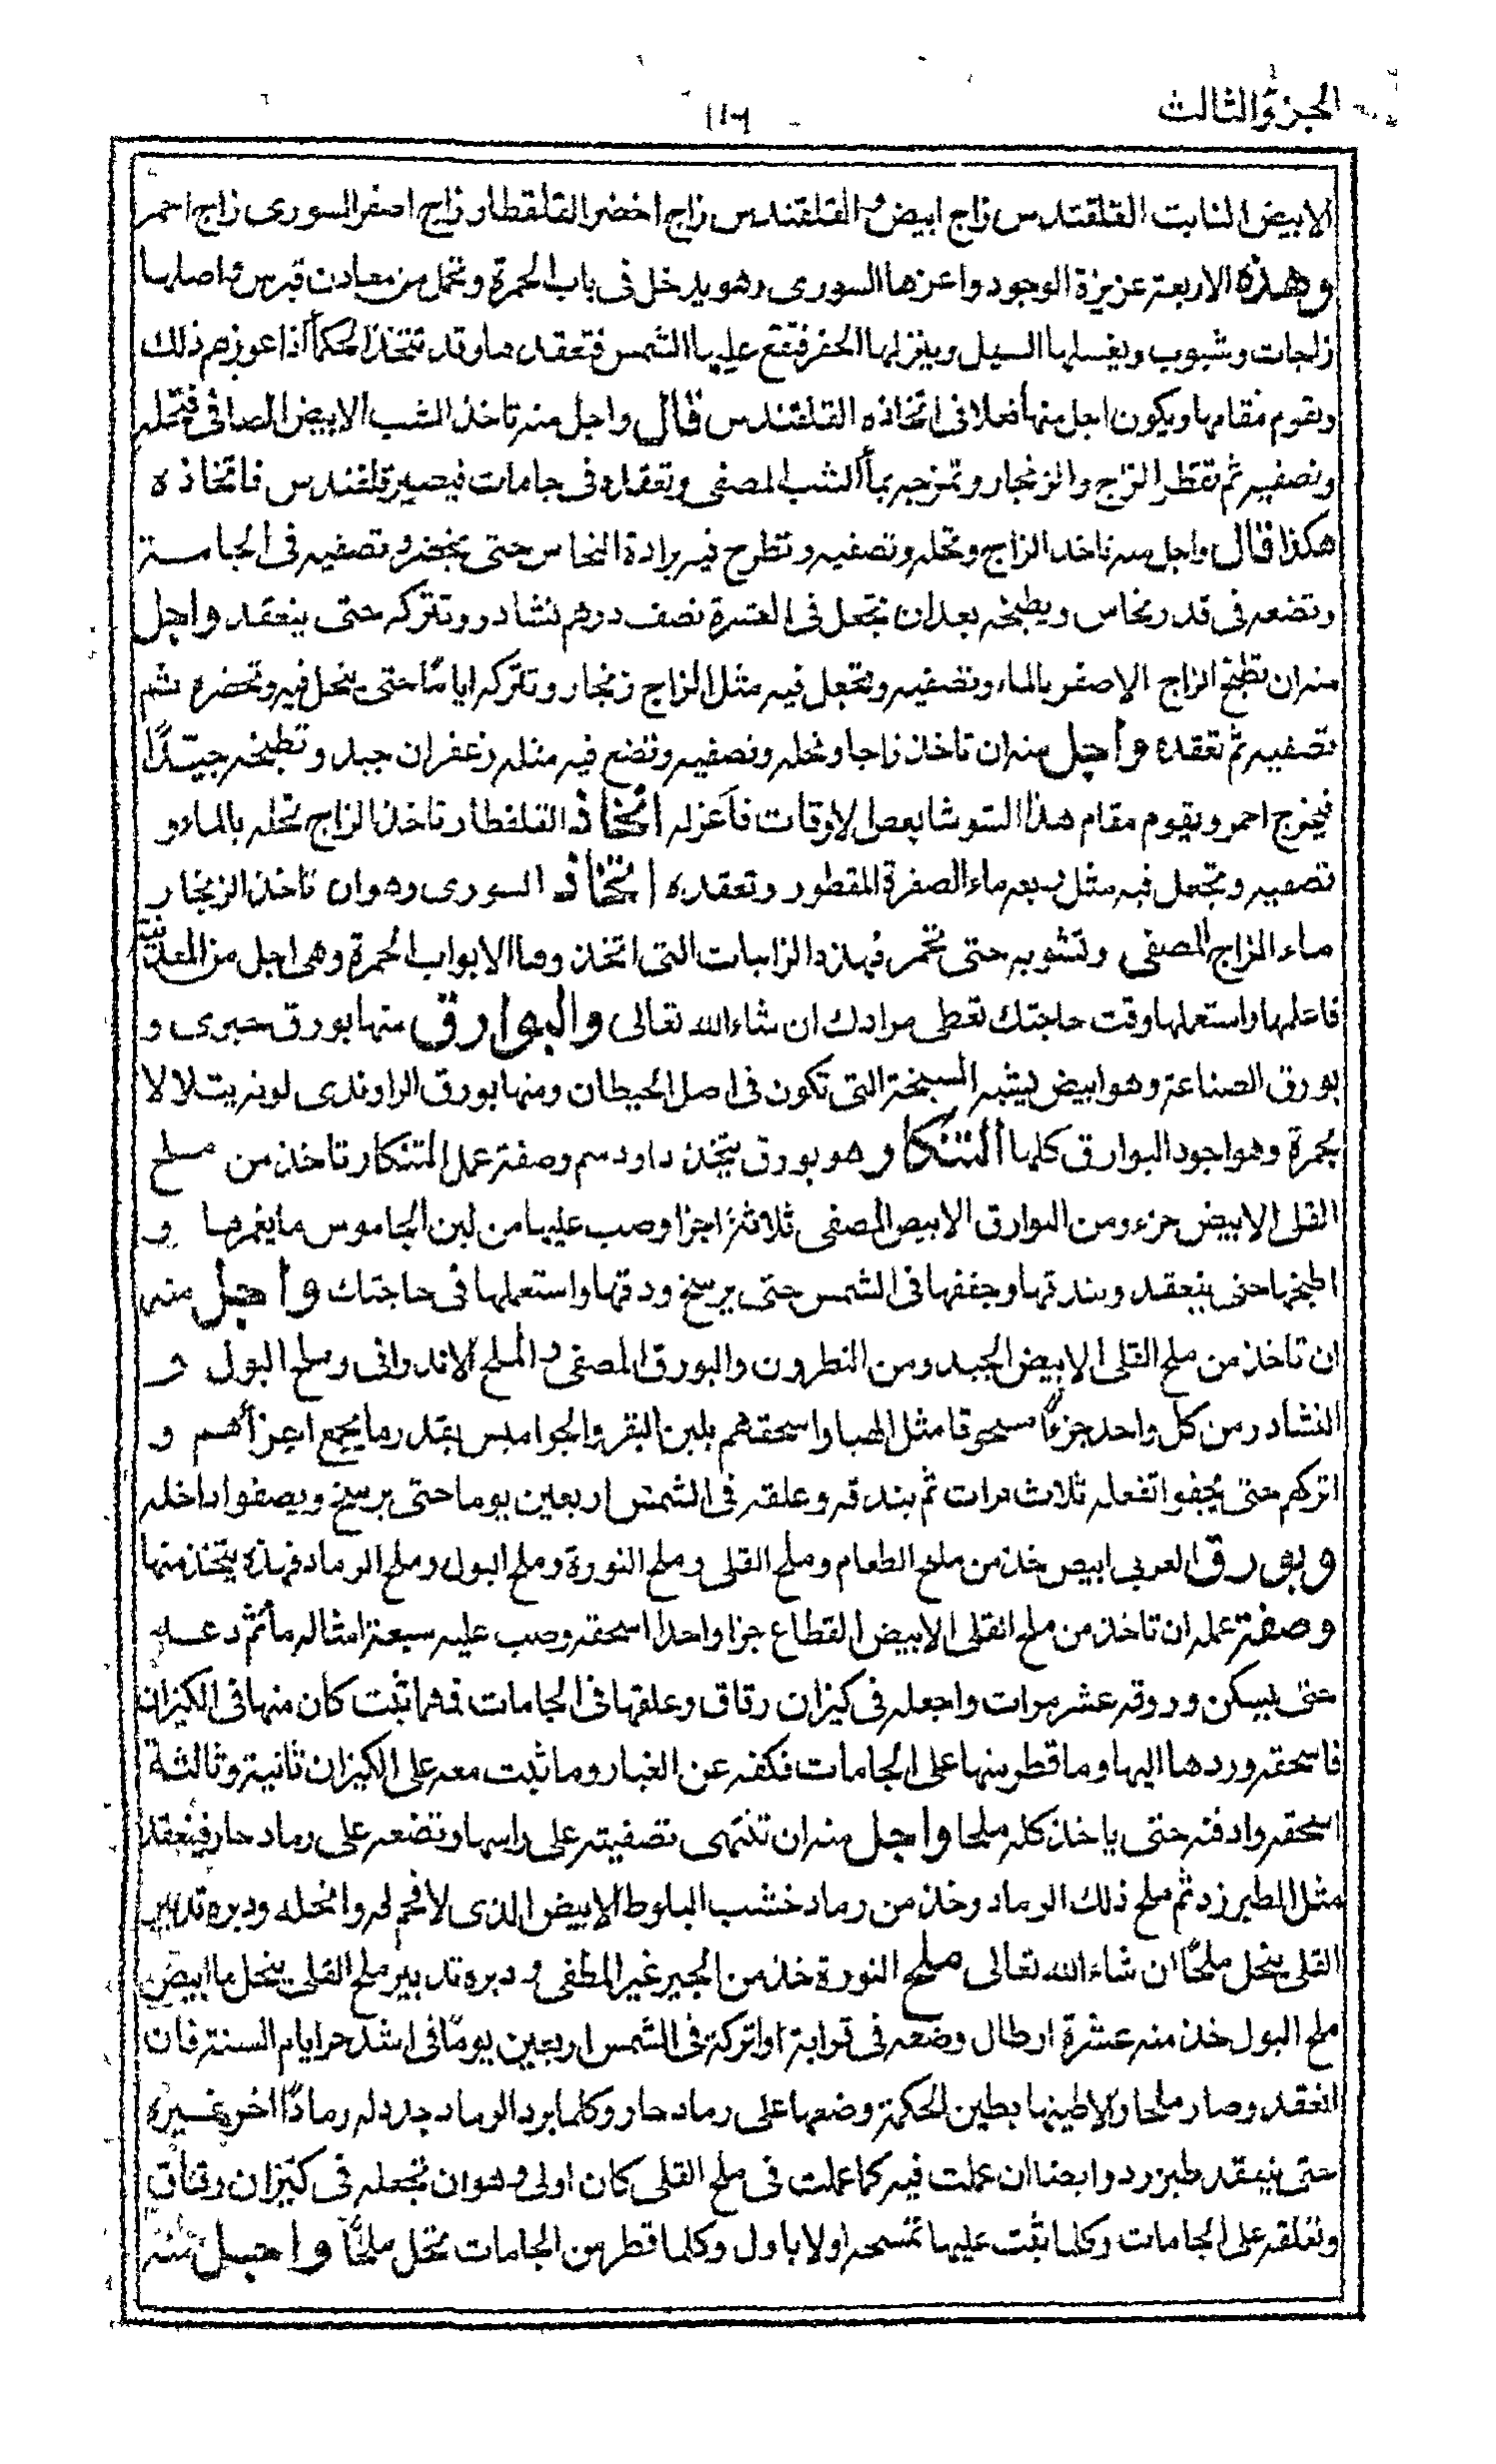 الجزؤ الثالث
١١٦
الابيض النابت القلقندس زاج ابيض و القلقندس زاج اخضر القلقطار زاج اصفر السورى زاج احمر
وهذه الاربعة عزيزة الوجود واعزها السورى وهو يدخل فى باب الحمرة وتحمل من معادن قبرس واصلها
زاجات وشبوب ويغسلها السيل وينزلها الحفر فتقع عليها الشمس فتعقدها وقد تتخذ الحكمأ اذا عوزهم ذلك
ويقوم مقامها ويكون اجل منها فعلا فى اتخاذه القلقندس قال واجل منه تاخذ الشب الابيض الصافى فتحله
وتصفيه ثم تقطر الزاج والزنجار وتمزجه بمأ الشب المصفى وتعقده فى جامات فيصير قلقندس فاتخاذه
هكذا قال واجل منه تاخذ الزاج وتحله وتصفيه وتطرح فيه برادة النحاس حتى يخضر وتصفيه فى الجامة
وتضعه فى قدر نحاس ويطبخه بعد ان تجعل فى العشرة نصف درهم نشادر وتتركه حتى ينعقد واجل
منه ان تطبخ الزاج الاصفر بالماء وتصفيه وتجعل فيه مثل الزاج زنجار وتتركه اياما حتى ينحل فيه وتخضره ثم
تصفيه ثم تعقده واجل منه ان تاخذ زاجا وتحله وتصفيه وتضع فيه مثله زعفران جيد وتطبخه جيدًا
فيخرج احمر ويقوم مقام هذا بعض الاوقات فاعزله اتخاذ القلقطار تاخذ الزاج تحله بالماء و
تصفيه وتجعل فيه مثل ربعه ماء الصفرة المقطور وتعقده اتخاذ السورى وهو ان تاخذ الزنجار
ماء الزاج المصفى وتشويه حتى تحمر فهذه الزاجات التى اتخذوها الابواب الحمرة وهى اجل من المعدنية
فاعلمها واستعملها وقت حاجتك تعطى مرادك ان شاء الله تعالى والبوارق منها بورق خبزى و
بورق الصناعة وهو ابيض يشبه السبخة التى تكون فى اصل الحيطان ومنها بورق الراوندى لونه يتلالا
بحمرة وهو اجود البوارق كلها التنكار هو بورق يتخذ وصفة عمل التنكار تاخذ من ملح
القلى الابيض جزء ومن البوارق الابيض المصفى ثلاثة اجزا وصب عليها من لبن الجاموس ما يغمرها و
اطبخها حتى ينعقد وبندقها وجففها فى الشمس حتى يرسخ ودقها واستعملها فى حاجتك واجل منه
ان تاخذ من ملح القلى الابيض الجيد ومن النطرون والبورق المصفى والملح الاندرانى وملح البول و
النشادر من كل واحد جزءا مسحوقا مثل الهبا واسحقهم بلبن البقر والجواميس بقدر ما يجمع اجزأهم و
اتركهم حتى يجفوا تفعله ثلاث مرات ثم بندقه وعلقه فى الشمس اربعين يوما حتى يرسخ ويصفوا داخله
وبورق العربى ابيض خذ من ملح الطعام وملح القلى وملح النورة وملح البول وملح الرماد فهذه يتخذ منها
وصفة عمله ان تاخذ من ملح القلى الابيض القطاع جزا واحدا اسحقه وصب عليه سبعة امثاله مأ ثم دعه
حتى يسكن وروقه عشر مرات واجعله فى كيزان رقاق وعلقها فى الجامات فما ثبت كان منها فى الكيزان
فاسحقه وردها اليها وما قطر منها على الجامات فكفه عن الغبار وما ثبت معه على الكيزان ثانية وثالثة
اسحقه وادفنه حتى ياخذ كله ملحا واجل منه ان تنتهى تصفيته على راسها وتضعه على رماد حار فينعقد
مثل الطبرزد ثم ملح ذلك الرماد وخذ من رماد خشب البلوط الابيض الذى لا فحم له وانخله ودبره تدبير
القلى ينحل ملحًا ان شاء الله تعالى ملح النورة خذ من الجير غير المطفى و دبره تدبير ملح القلى ينحل ما ابيض
ملح البول خذ منه عشرة ارطال وضعه فى قرابة او اتركه فى الشمس اربعين يومًا فى اشد حر ايام السنة فان
انعقد وصار ملحا والا طينها بطين الحكمة وضعها على رماد حار وكلما برد الرماد جدد له رمادًا اخر بغيره
حتى ينعقد طبزرد وايضا ان عملت فيه كما عملت فى ملح القلى كان اولى وهو ان تجعله فى كيزان رقاق
وتعلقه على الجامات وكلما ثبت عليها تمسحه اولا باول وكلما قطر من الجامات تنحل ملحًا واجل منه